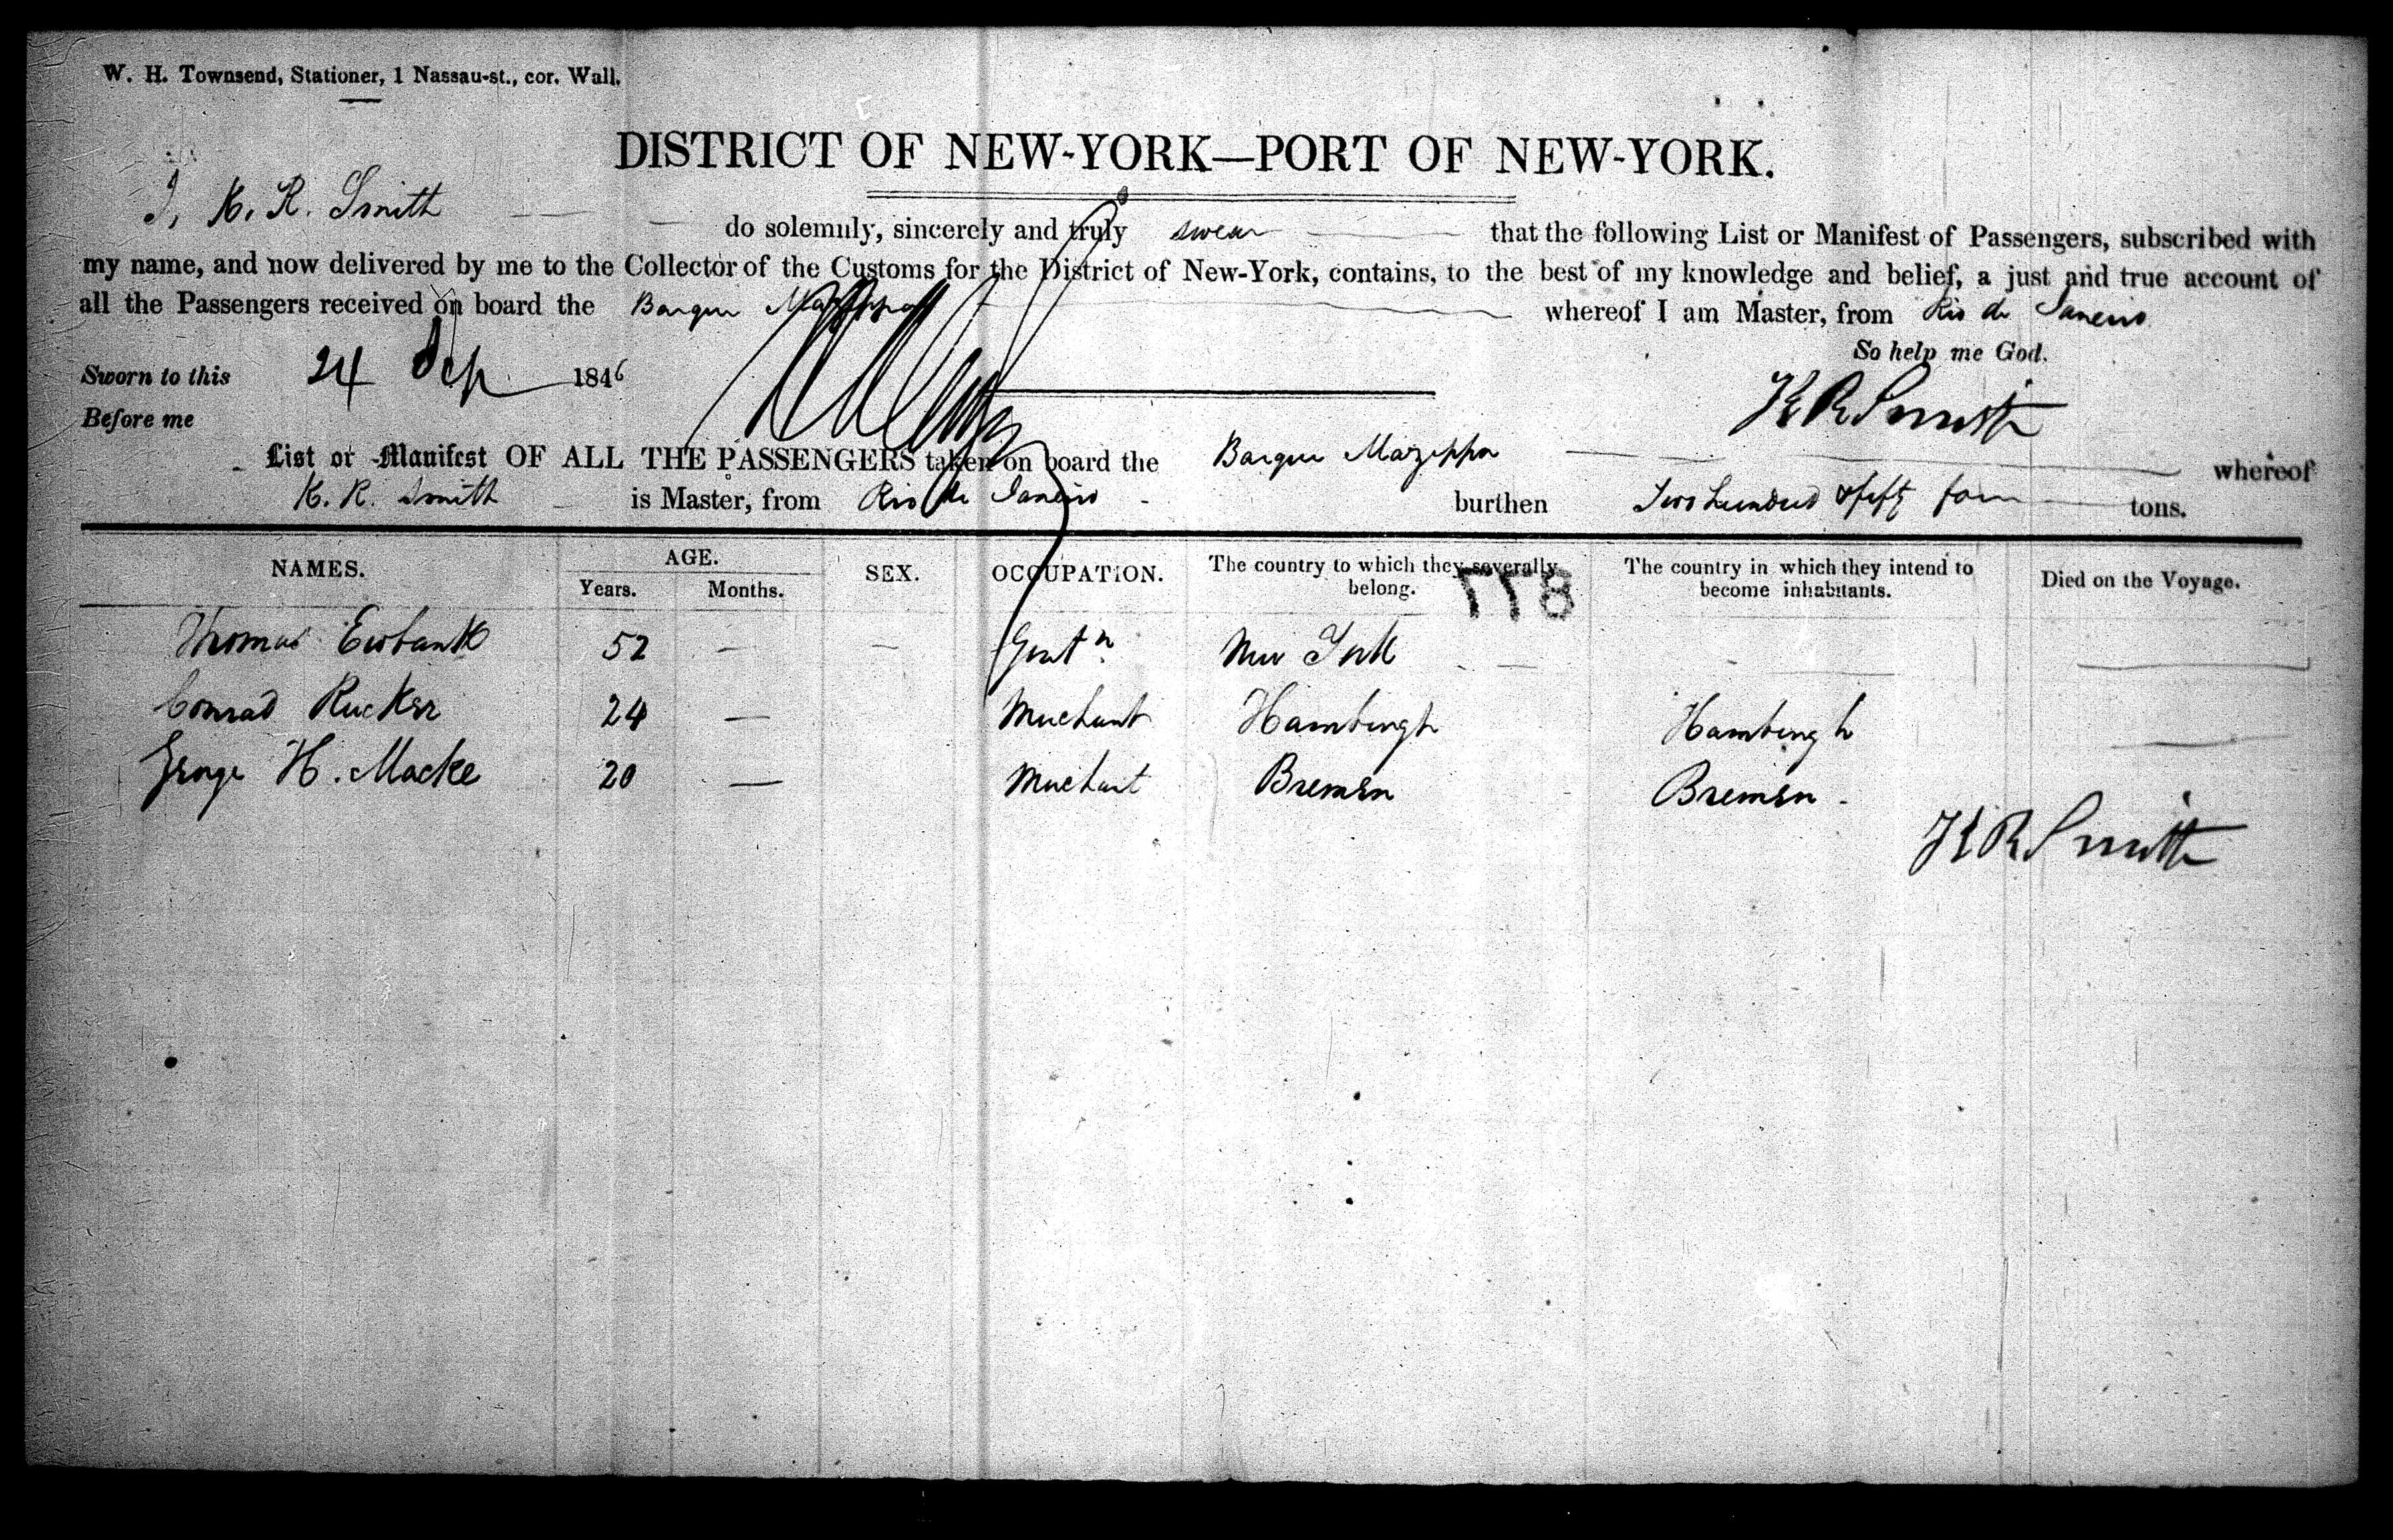 W. H. Townsend, Stationer, 1 Nassau-st., cor. Wall.
DISTRICT OF NEW-YORK—PORT OF NEW-YORK.
I, K. R. Smith do solemnly, sincerely and truly swear that the following List or Manifest of Passengers, subscribed with
my name, and now delivered by me to the Collector of the Customs for the District of New-York, contains, to the best of my knowledge and belief, a just and true account of
all the Passengers received on board the Barque Mazeppa whereof I am Master, from Rio de Janeiro
So help me God.
Sworn to this 24 Sep 1846
K R Smith
Before me
List or Manifest OF ALL THE PASSENGERS taken on board the Barque Mazeppa whereof
K. R. Smith is Master, from Rio de Janeiro burthen Two hundred & fifty four tons.
NAMES. AGE. SEX. OCCUPATION. The country to which they severally belong. The country in which they intend to become inhabitants. Died on the Voyage.
Years. Months.
778
Thomas Ewbank 52 — — Gentn New York — —
Conrad Rucker 24 — Merchant Hamburgh Hamburgh —
George H. Macke 20 — Merchant Bremen Bremen -
K R Smith